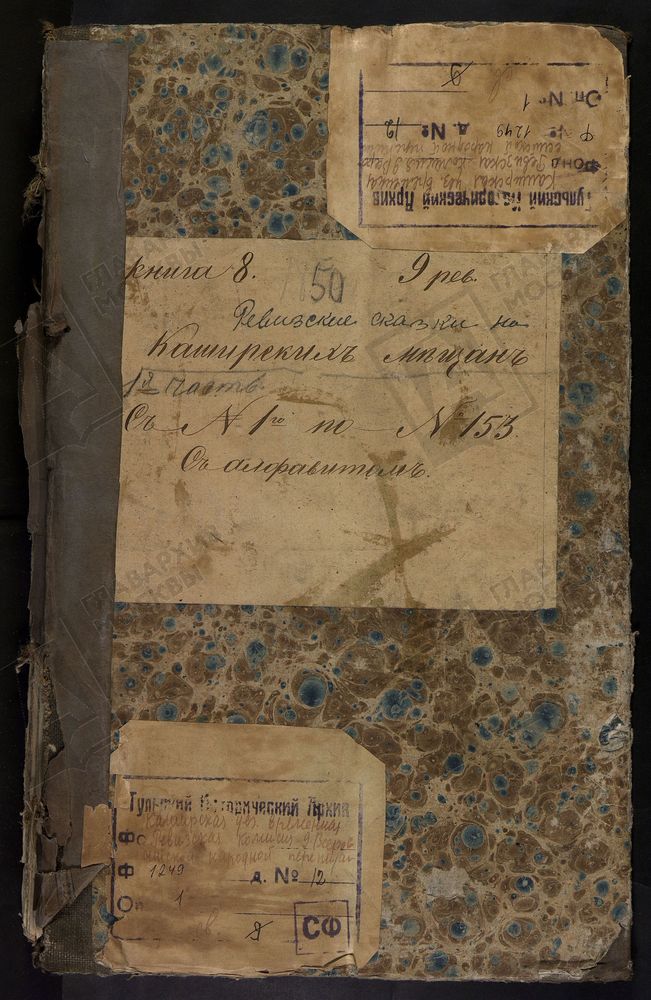 Тульский Исторический Архив
Фонд Каширская уез. временная
Ревизская комиссия 9 Всеро
ссийской народной переписи
Ф № 1249 д. № 12
Оп. № 1
св 8
книга 8. 150 9 рев.
Ревизские сказки на
Каширскихъ мѣщанъ
1я часть.
Съ № 1го по № 153.
Съ алфавитомъ.
Тульский Исторический Архив
Каширская уез. временная
Ревизская комиссия 9 Всеров
ссийской народной переписи
1249 д. № 12
1
св 8
СФ
ГЛАВАРХИВ
МОСКВЫ